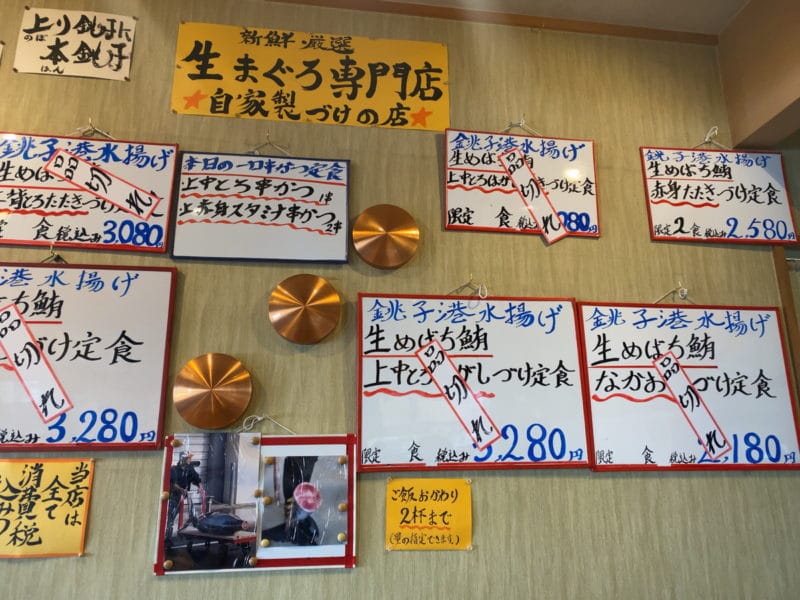 上り銚子に
のぼ
本銚子
ほん
新鮮 厳選
生まぐろ専門店
★自家製づけの店★
銚子港水揚げ
生めば
品切れ
たたきづけ定食
食 税込み 3,080円
本日の一口串かつ定食
上中とろ串かつ 1串
上赤身スタミナ串かつ 2串
銚子港水揚げ
生めばち鮪
品切れ
上中とろはが きづけ定食
限定 食 税込 280円
銚子港水揚げ
生めばち鮪
赤身たたきづけ定食
限定2食 税込み 2,580円
銚子港水揚げ
ばち鮪
品切れ
づけ定食
税込み 3,280円
銚子港水揚げ
生めばち鮪
品切れ
上中とろ がしづけ定食
限定 食 3,280円
銚子港水揚げ
生めばち鮪
品切れ
なかお づけ定食
限定 食 税込み 2,180円
当店は
全て
消費税
込み
ご飯おかわり
2杯まで
(量の指定できます。)